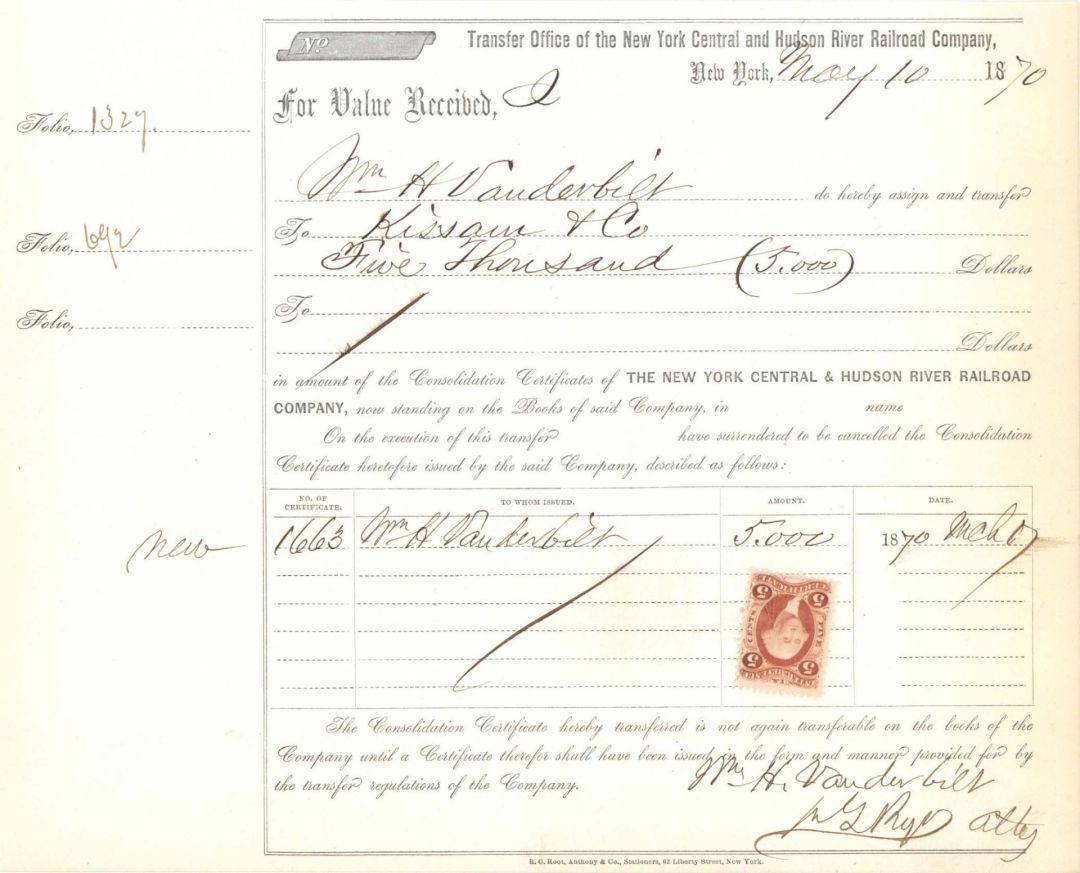 No
Transfer Office of the New York Central and Hudson River Railroad Company,
New York, May 10 1870
For Value Received, I
Folio, 1327.
Wm H Vanderbilt do hereby assign and transfer
Folio, 692
To Kissam & Co
Five Thousand (5.000) Dollars
Folio,
To
Dollars
in amount of the Consolidation Certificates of THE NEW YORK CENTRAL & HUDSON RIVER RAILROAD
COMPANY, now standing on the Books of said Company, in name
On the execution of this transfer have surrendered to be cancelled the Consolidation
Certificate heretofore issued by the said Company, described as follows:
NO. OF CERTIFICATE. TO WHOM ISSUED. AMOUNT. DATE.
new 1663 Wm H Vanderbilt 5.000 1870 Mch
5 FIVE CENTS 5
U.S. INTER. REV.
The Consolidation Certificate hereby transferred is not again transferable on the books of the
Company until a Certificate therefor shall have been issued in the form and manner provided for by
the transfer regulations of the Company.
Wm H. Vanderbilt
Atty
R. C. Root, Anthony & Co., Stationers, 62 Liberty Street, New York.